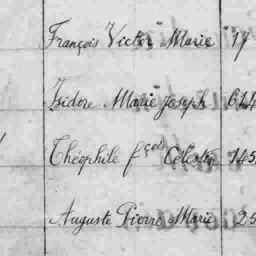 François "Victor" Marie 17
Isidore Marie Joseph 614
Théophile fçois Célestin 145
Auguste Pierre Marie 25